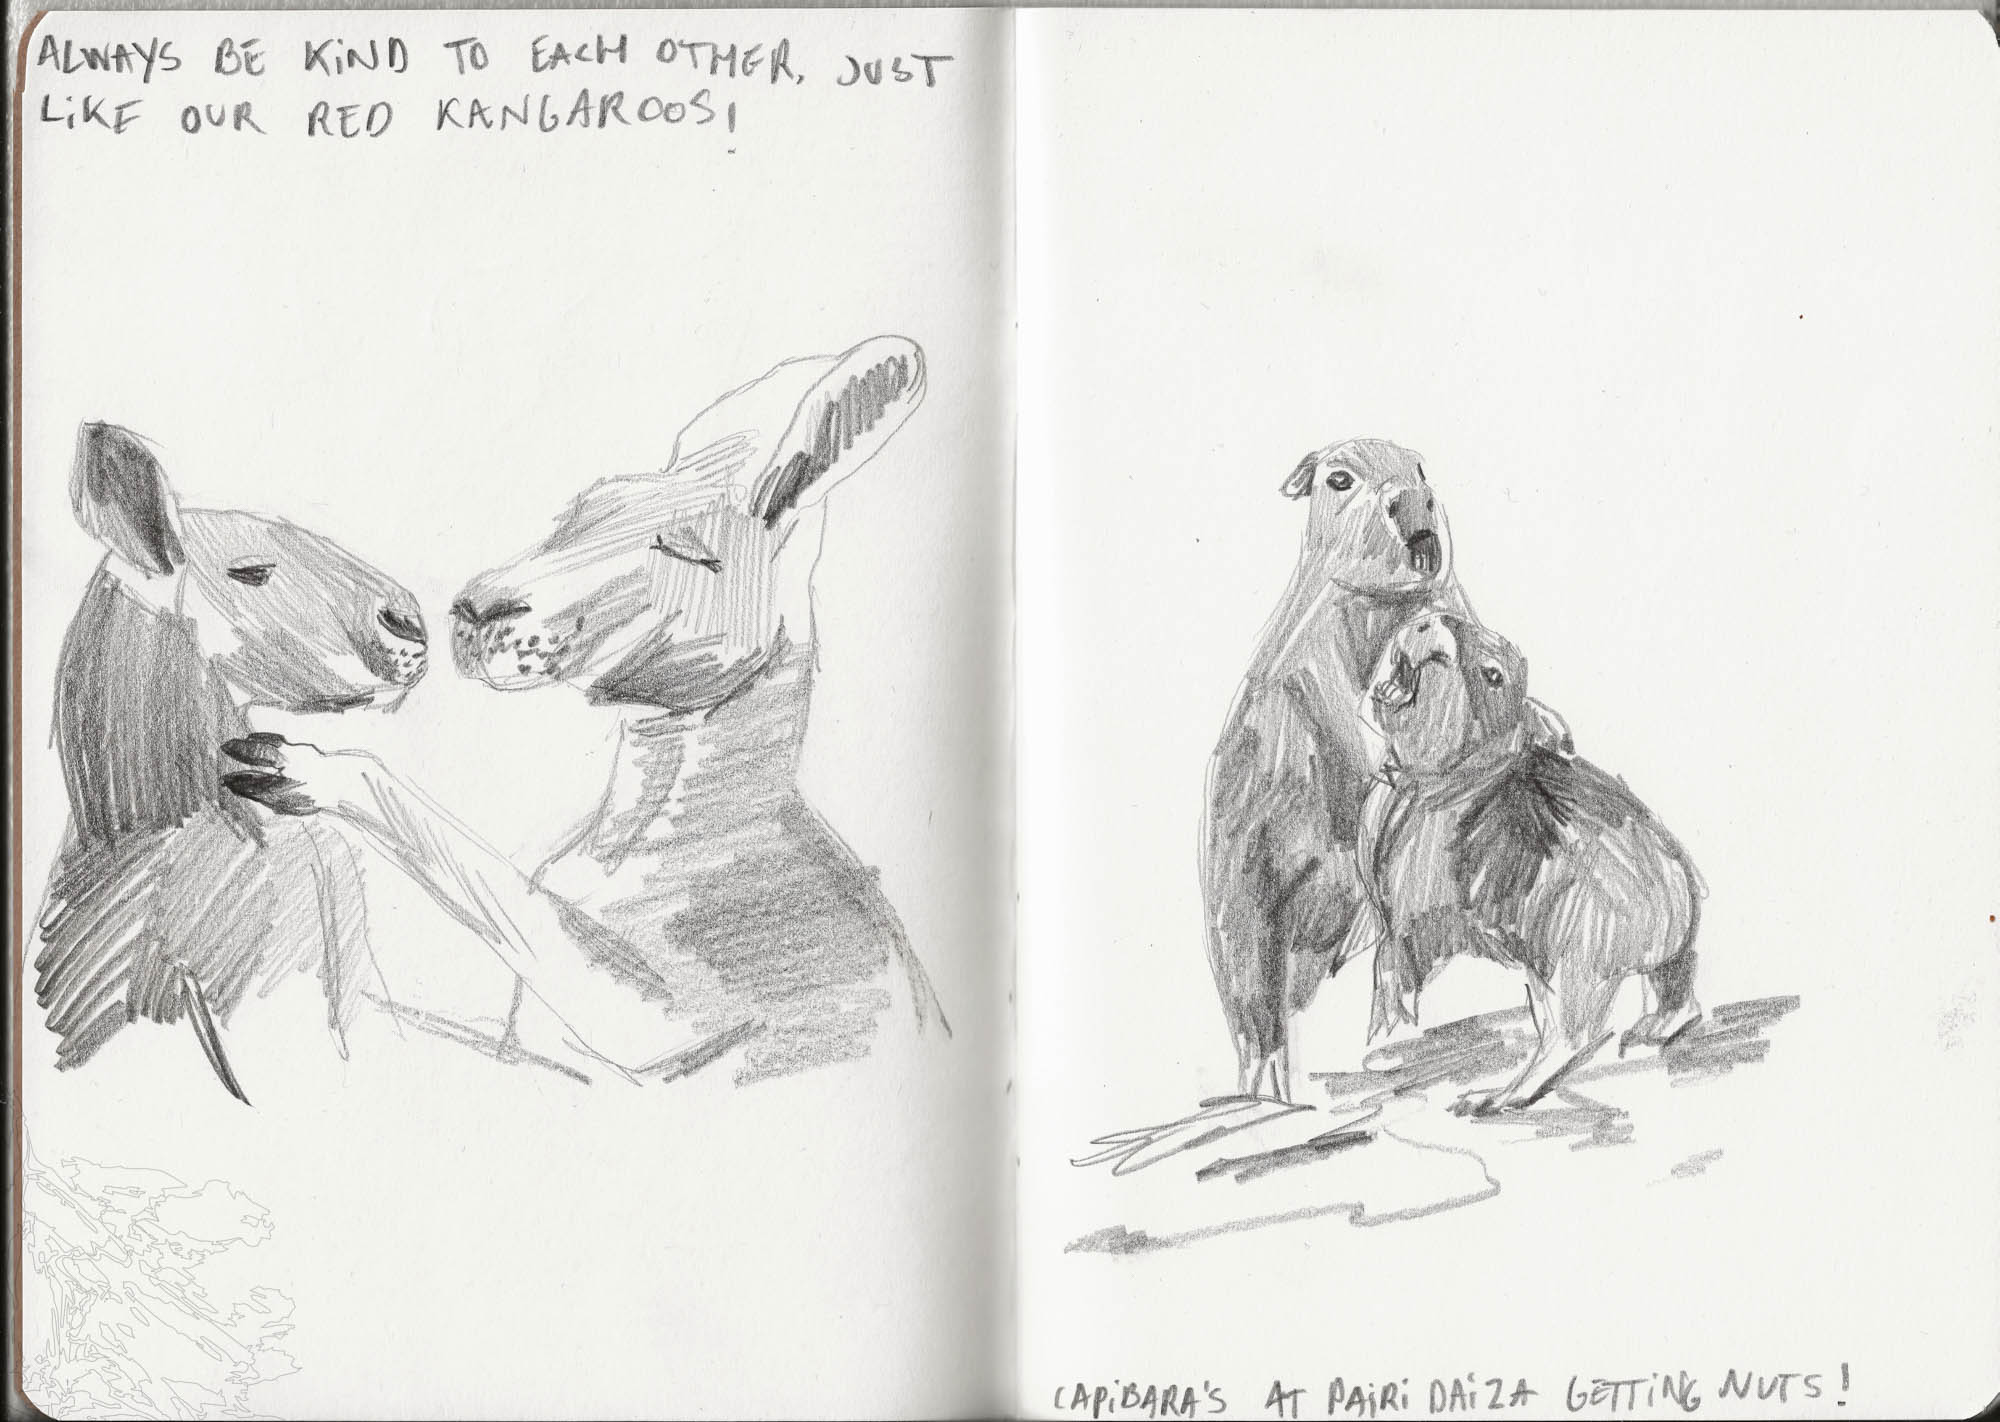 ALWAYS BE KIND TO EACH OTHER, JUST
LIKE OUR RED KANGAROOS!
CAPIBARA'S AT PAIRI DAIZA GETTING NUTS!